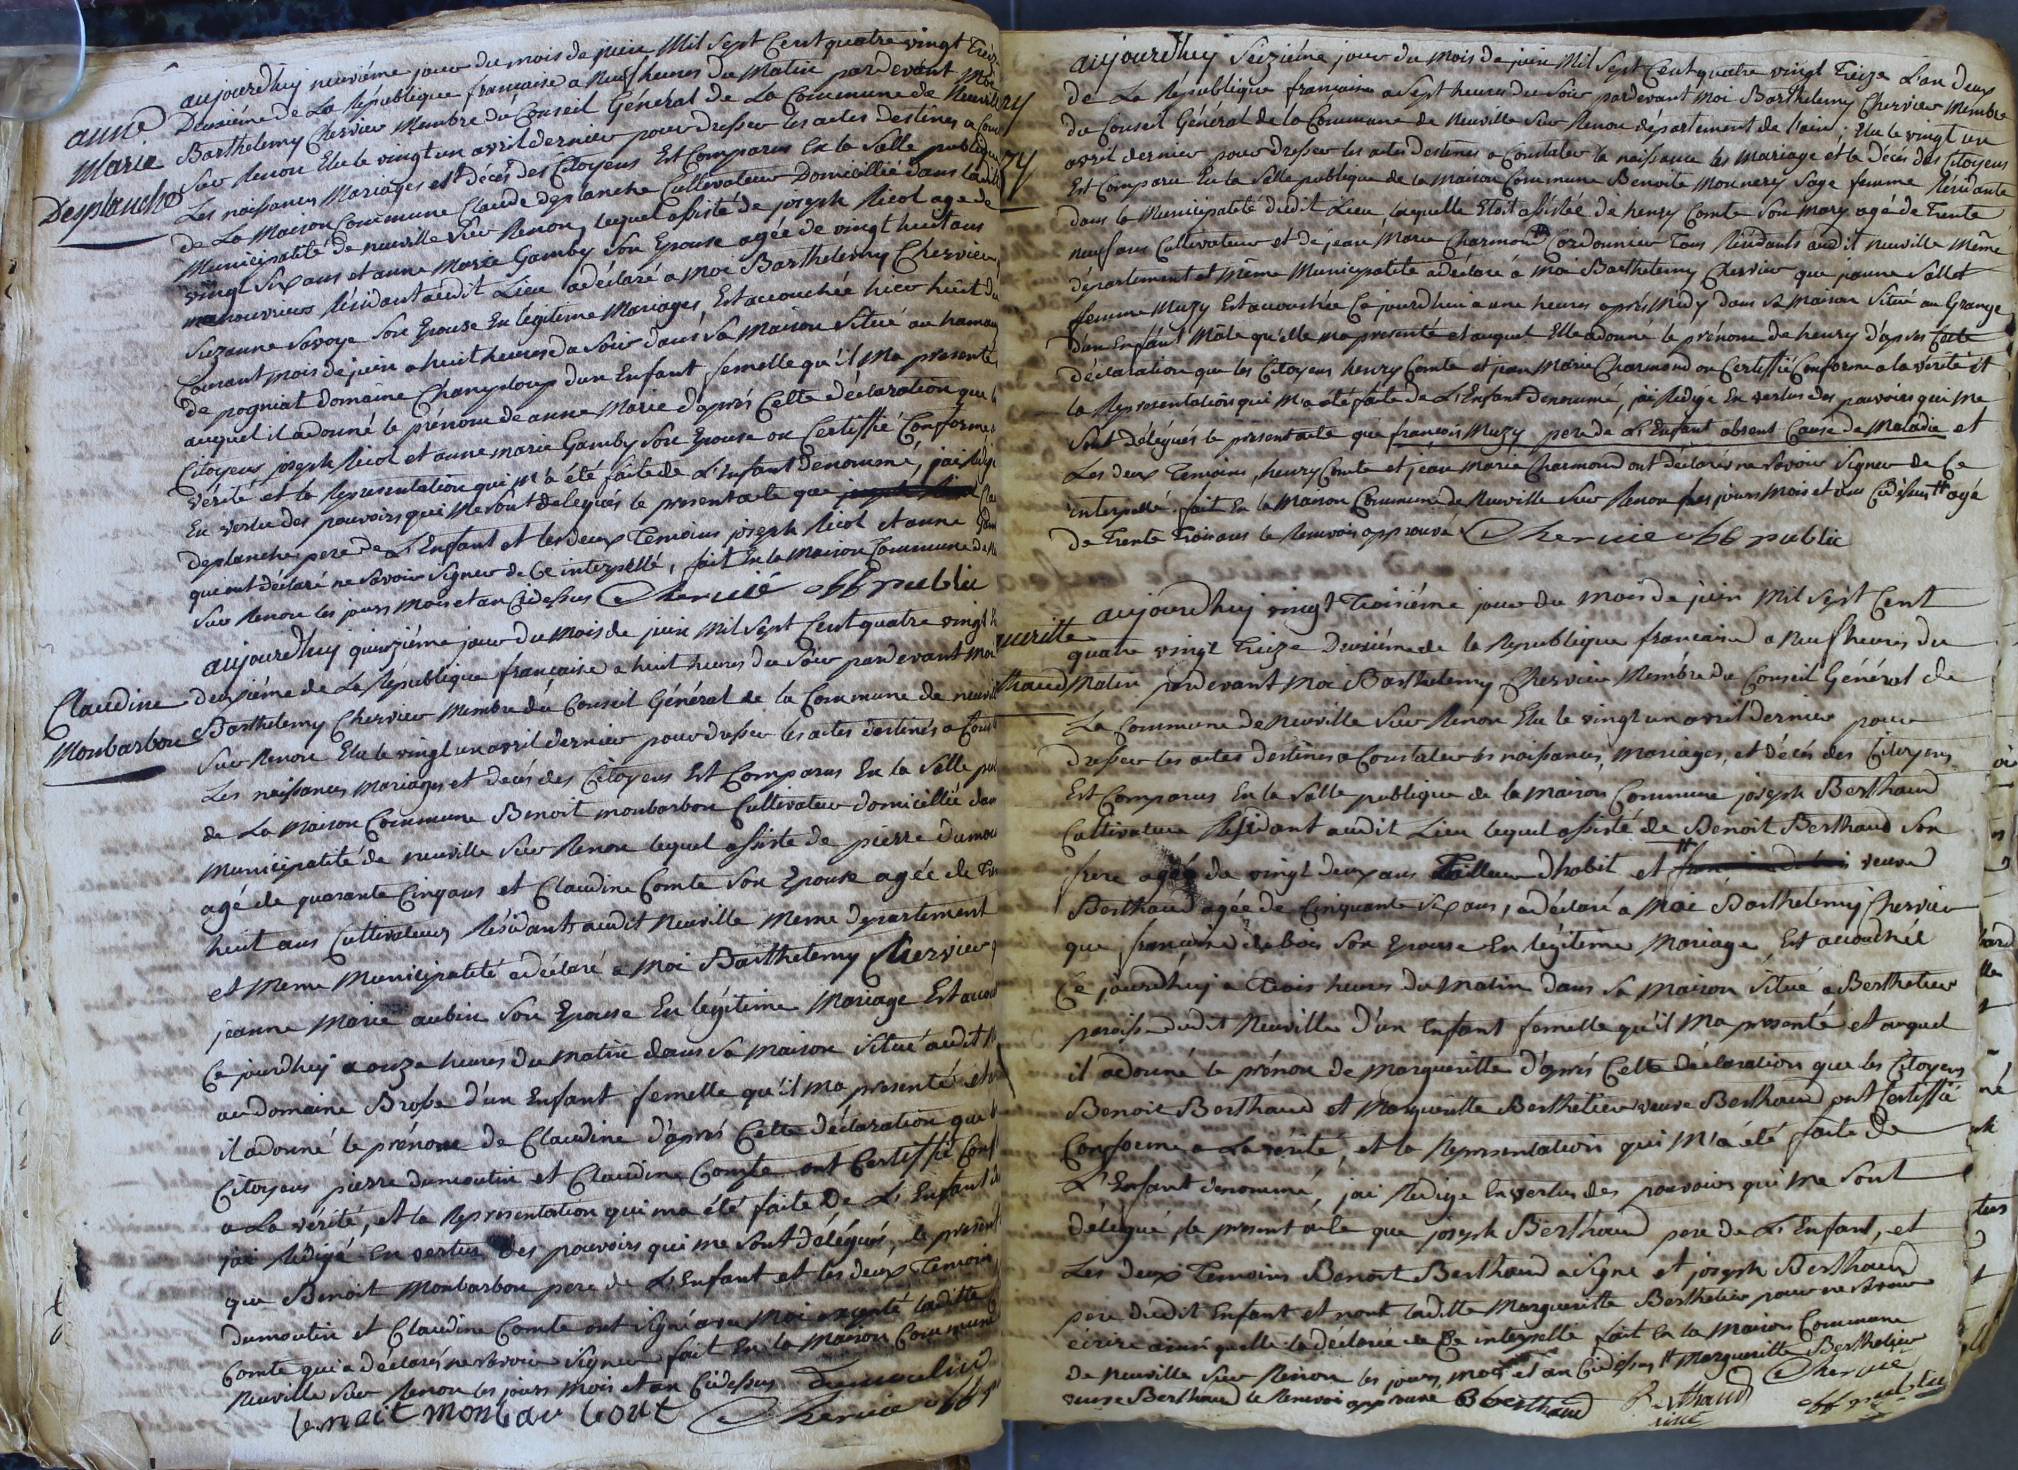 anne
Marie
Desplanche
aujourdhuy neuvième jour du mois de juin Mil Sept Cent quatre vingt Treiz
Deuxième de La République française a Neuf heures du Matin pardevant Moi
Barthelemy Chervier Membre du Conseil Général de La Commune de Neuville
Sur Renon Elu le vingt un avril dernier pour dresser les actes destinés a Cons
Les naissances Mariages et décès des Citoyens Est Comparus En la Salle publique
de La Maison Commune Claude deplanche Cultivateur Domicillié dans ladite
Municipalité de neuville Sur Renon, lequel assisté de joseph Ricol agé de
vingt Six ans et anne Marie Gamby Son Epouse agée de vingt huit ans
manouvriers Résidant audit Lieu a déclaré a Moi Barthelemy Chervier
Suzanne Savoye Son Epouse En légitime Mariages, Est accouchée hier huit du
Courant mois de juin a huit heures du Soir dans Sa Maison Situé au hamau
de pogniat domaine Champloup d'un Enfant femelle qu'il Ma presenté
auquel il a donné le prénom de anne Marie d'après Cette déclaration que l
Citoyens joseph Ricol et anne marie Gamby Son Epouse on Certiffié Conforme
vérité et la Representation qui M'a été faite de L'Enfant denommé, jai Rédig
En vertu des pouvoirs qui Me Sont delegués le present acte que
deplanche pere de L'Enfant et les deux Temoins joseph Ricol et anne Gam
qui ont déclaré ne Savoir Signer de Ce interpellé, fait En la Maison Commune de
Sur Renon les jours Mois et an Cidessus Chervié off public
Claudine
Monbarbon
aujourdhuy quinzième jour du Mois de juin Mil Sept Cent quatre vingt
deuxième de La République française a huit heures du Soir pardevant Moi
Barthelemy Chervier Membre du Conseil Général de la Commune de neuvill
Sur Renon Elu le vingt un avril dernier pour dresser les actes destinés a Cons
Les naissances Mariages et decés des Citoyens Est Comparus En la Salle pu
de La Maison Commune Benoit monbarbon Cultivateur domicillié dan
Municipalité de neuville Sur Renon lequel assisté de pierre dumou
agé de quarante Cinq ans et Claudine Comte Son Epouse agée de Tre
huit ans Cultivateurs Résidants audit Neuville Meme département
et Meme Municipalité a déclaré a Moi Barthelemy Chervier
jeanne Marie aubin Son Epouse En légitime Mariage Est accou
Ce jourdhuy a onze heures du matin dans Sa Maison Situé audit
au domaine Brosse d'un Enfant femelle qu'il Ma presenté et
il a donné le prénom de Claudine d'après Cette déclaration que
Citoyens pierre dumoutin et Claudine Comte ont Certiffié Conf
a La vérité, et la Representation qui ma été faite de L'Enfant d
jai Rédigé En vertus des pouvoirs qui me Sont délégués, le present
que Benoit Monbarbon pere de L'Enfant et les deux Temoin
dumoutin et Claudine Comte ont Signé avec Moi excepté laditte
Comte qui a déclaré ne Savoir Signer fait En la Maison Commune
Neuville Sur Renon les jours Mois et an Cidessus Dumoulin
Chervié off
24
aujourdhuy Seizième jour du Mois de juin Mil Sept Cent quatre vingt Treize L'an deux
de La République françaises a Sept heures du Soir pardevant Moi Barthelemy Chervier Membre
du Conseil Général de la Commune de Neuville Sur Renon département de l'ain, Elu le vingt un
avril dernier pour dresser les actes destinés a Constater la naissance les Mariage et le Décès des Citoyens
Est Comparu En la Salle publique de la Maison Commune Benoite Monnery Sage femme Résidante
dans la Municipalité dudit Lieu, laquelle Etoit assistée de henry Comte Son Mary agé de Trente
neuf ans Cultivateur et de jean Marie Charmond Cordonnier Tous Résidants audit neuville Même
département et Même Municipalité a déclaré a Moi Barthelemy Chervier que jeanne Sallet
femme Muzy Est accouchée Ce jourdhui a une heures après Midy dans Sa Maison Situé au Grange
d'un Enfant Mâle qu'elle ma presenté et auquel Elle a donné le prénom de henry d'après Cette
déclaration que les Citoyens henry Comte et jean Marie Charmond on Certiffié Conforme a la vérité et
la Représentation qui M'a été faite de L'Enfant denommé, jai Rédigé En vertus des pouvoirs qui me
Sont délégués le présent acte que françois Muzy pere de L'Enfant absent Cause de Maladie et
Les deux Temoins, henry Comte et jean Marie Charmond ont déclarés ne Savoir Signer de Ce
interpellé. fait En la Maison Commune de Neuville Sur Renon les jours Mois et an Cidessus # agé
de Trente Trois ans le Renvois approuvé Chervié off public
uerite
thaud
aujourdhuy vingt Troisième jour du Mois de juin Mil Sept Cent
quatre vingt Treize Deuxième de la République française a Neuf heures du
Matin pardevant Moi Barthelemy Chervier Membre du Conseil Général de
La Commune de Neuville Sur Renon Elu le vingt un avril dernier pour
dresser les actes destinés a Constater les naissances, Mariages, et décés des Citoyens
Est Comparus En la Salle publique de la Maison Commune joseph Berthaud
Cultivateur Résidant audit Lieu lequel assisté de Benoit Berthaud Son
frere agée de vingt deux ans Tailleur d'habit et # veuve
Berthaud agée de Cinquante Six ans, a déclaré a Moi Barthélemy Chervier
que françoise debois Son Epouse En légitime Mariage Est accouchée
Ce jourdhuy a Trois heures du Matin dans Sa Maison Situé a Berthelier
paroisse dudit Neuville d'un Enfant femelle qu'il Ma presenté et auquel
il a donné le prénom de Margueritte d'après Cette déclaration que les Citoyens
Benoit Berthaud et Margueritte Berthelier veuve Berthaud ont Certiffié
Conforme a La vérité, et la Representation qui M'a été faite de
L'Enfant denommé, jai Rédigé En vertus des pouvoirs qui me Sont
délégué, le present acte que joseph Berthaud pere de L'Enfant, et
Les deux Temoins Benoit Berthaud a Signé et joseph Berthaud
pere dudit Enfant et nont laditte Margueritte Berthelier pour ne Savoir
écrire ainsi qu'elle la déclarée de Ce interpellé fait En la Maison Commune
de Neuville Sur Renon les jours, mois et an Cidessus # Margueritte Berthelier
veuve Berthaud le Renvoi approuvé B berthaud Berthaud Chervié
off public